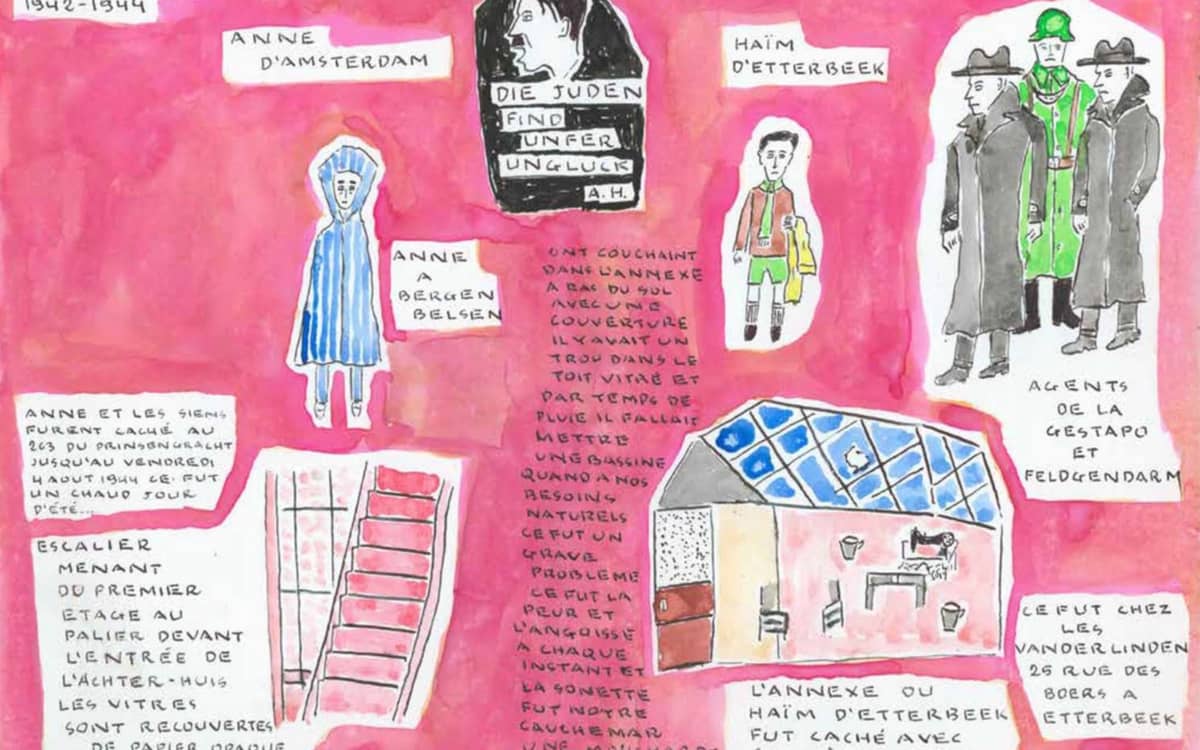 1942-1944
ANNE
D'AMSTERDAM
DIE JUDEN
FIND
UNFER
UNGLUCK
A.H.
HAÏM
D'ETTERBEEK
ANNE
A
BERGEN
BELSEN
AGENTS
DE LA
GESTAPO
ET
FELDGENDARM
ANNE ET LES SIENS
FURENT CACHÉ AU
263 DU PRINSENGRACHT
JUSQU'AU VENDREDI
4 AOUT 1944 CE FUT
UN CHAUD JOUR
D'ÉTÉ...
ESCALIER
MENANT
DU PREMIER
ETAGE AU
PALIER DEVANT
L'ENTRÉE DE
L'ACHTER-HUIS
LES VITRES
SONT RECOUVERTES
DE PAPIER OPAQUE
ONT COUCHAINT
DANS L'ANNEXE
A RAS DU SOL
AVEC UNE
COUVERTURE
IL Y AVAIT UN
TROU DANS LE
TOIT VITRÉ ET
PAR TEMPS DE
PLUIE IL FALLAIT
METTRE
UNE BASSINE
QUAND A NOS
BESOINS
NATURELS
CE FUT UN
GRAVE
PROBLEME
CE FUT LA
PEUR ET
L'ANGOISSE
A CHAQUE
INSTANT ET
LA SONETTE
FUT NOTRE
CAUCHEMAR
UNE
CE FUT CHEZ
LES
VANDERLINDEN
25 RUE DES
BOERS A
ETTERBEEK
L'ANNEXE OU
HAÏM D'ETTERBEEK
FUT CACHÉ AVEC